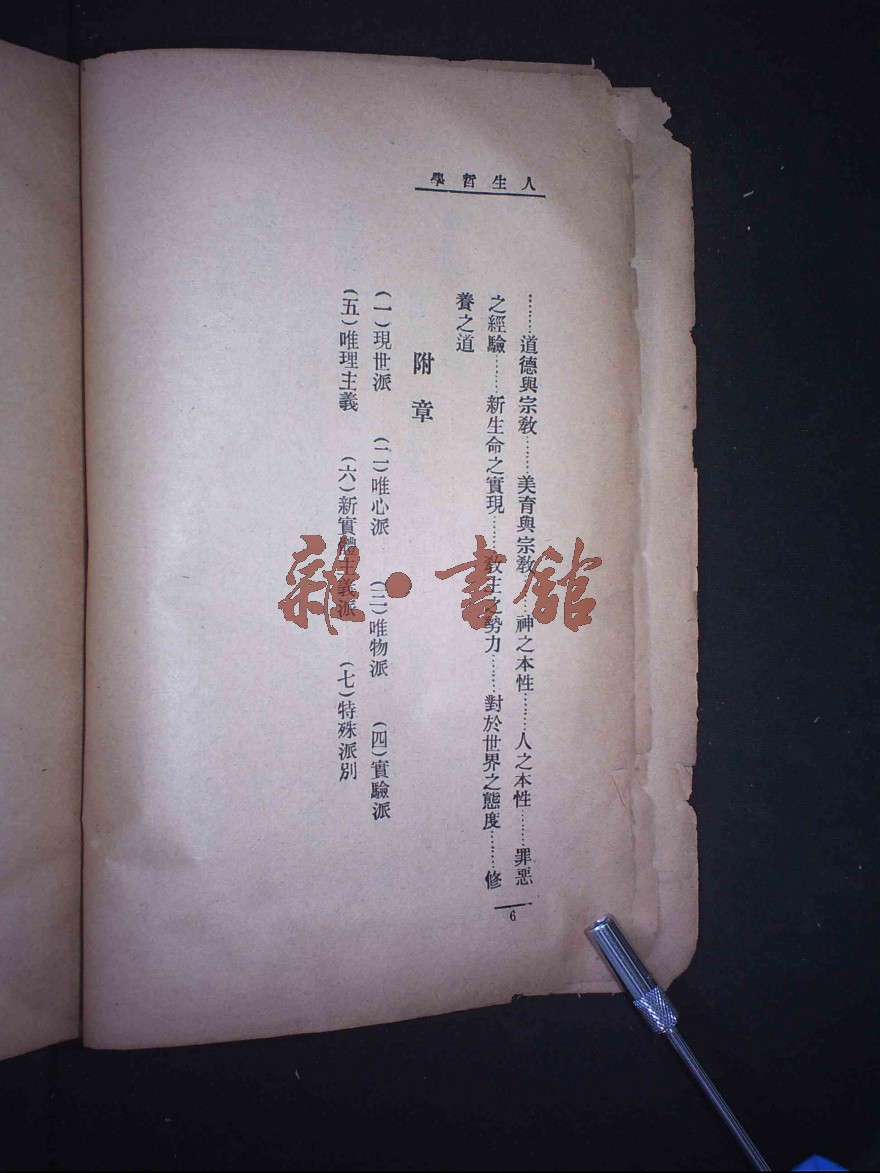 人生哲學
………道德與宗教………美育與宗教………神之本性………人之本性………罪惡
之經驗………新生命之實現………教主之勢力………對於世界之態度………修
養之道
附章
(一)現世派 (二)唯心派 (三)唯物派 (四)實驗派
(五)唯理主義 (六)新實體主義派 (七)特殊派別
6
雜·書館